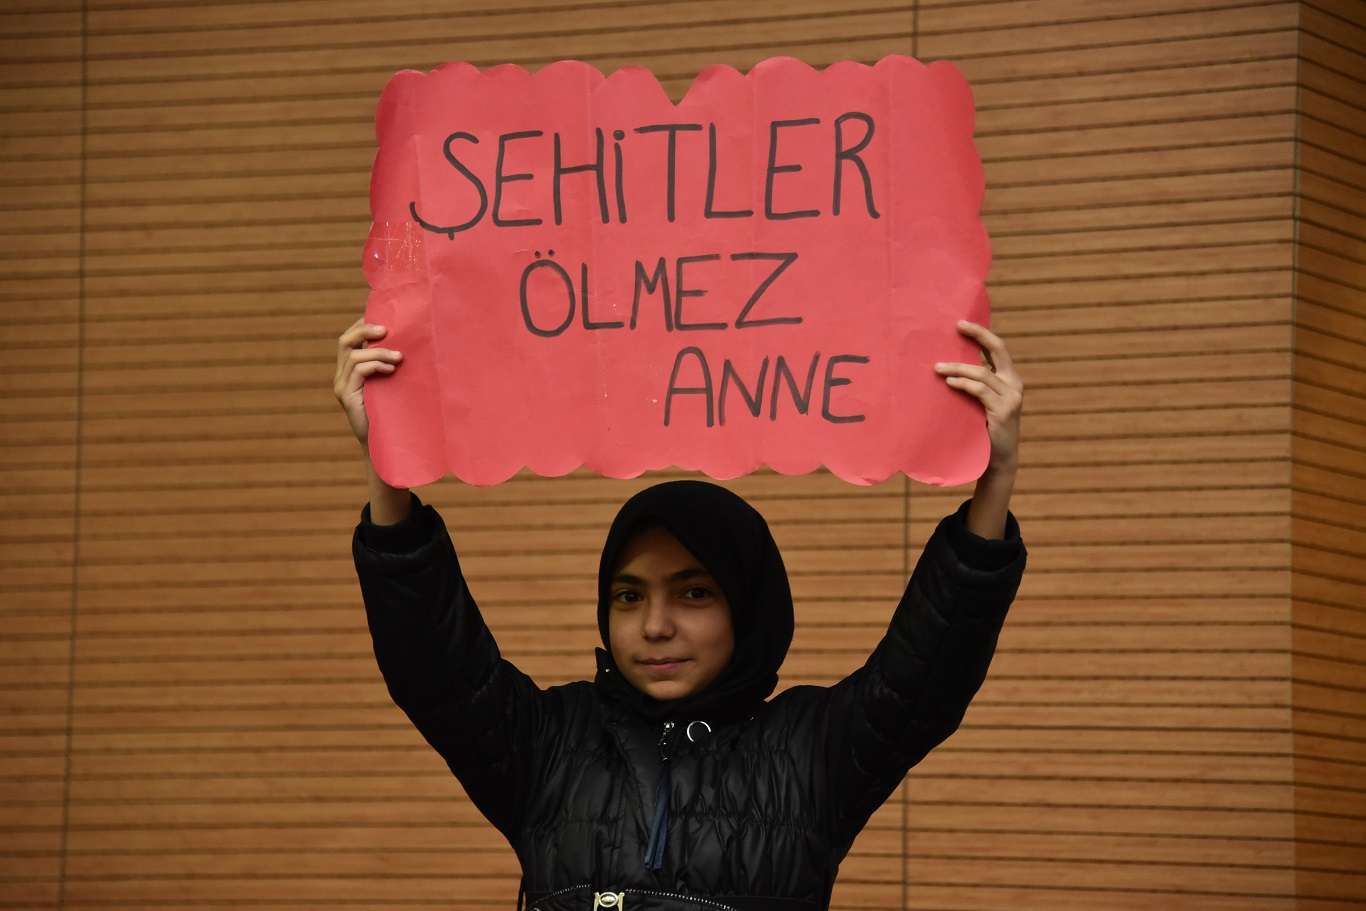 ŞEHİTLER
ÖLMEZ
ANNE